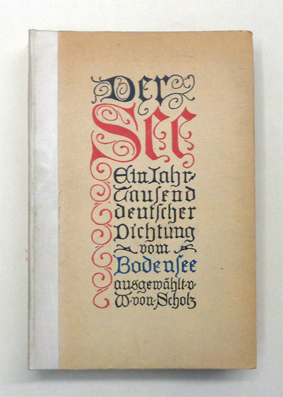 Der
See
Ein Jahr-
Tausend
deutscher
Dichtung
vom
Bodensee
ausgewählt v.
W. von Scholz